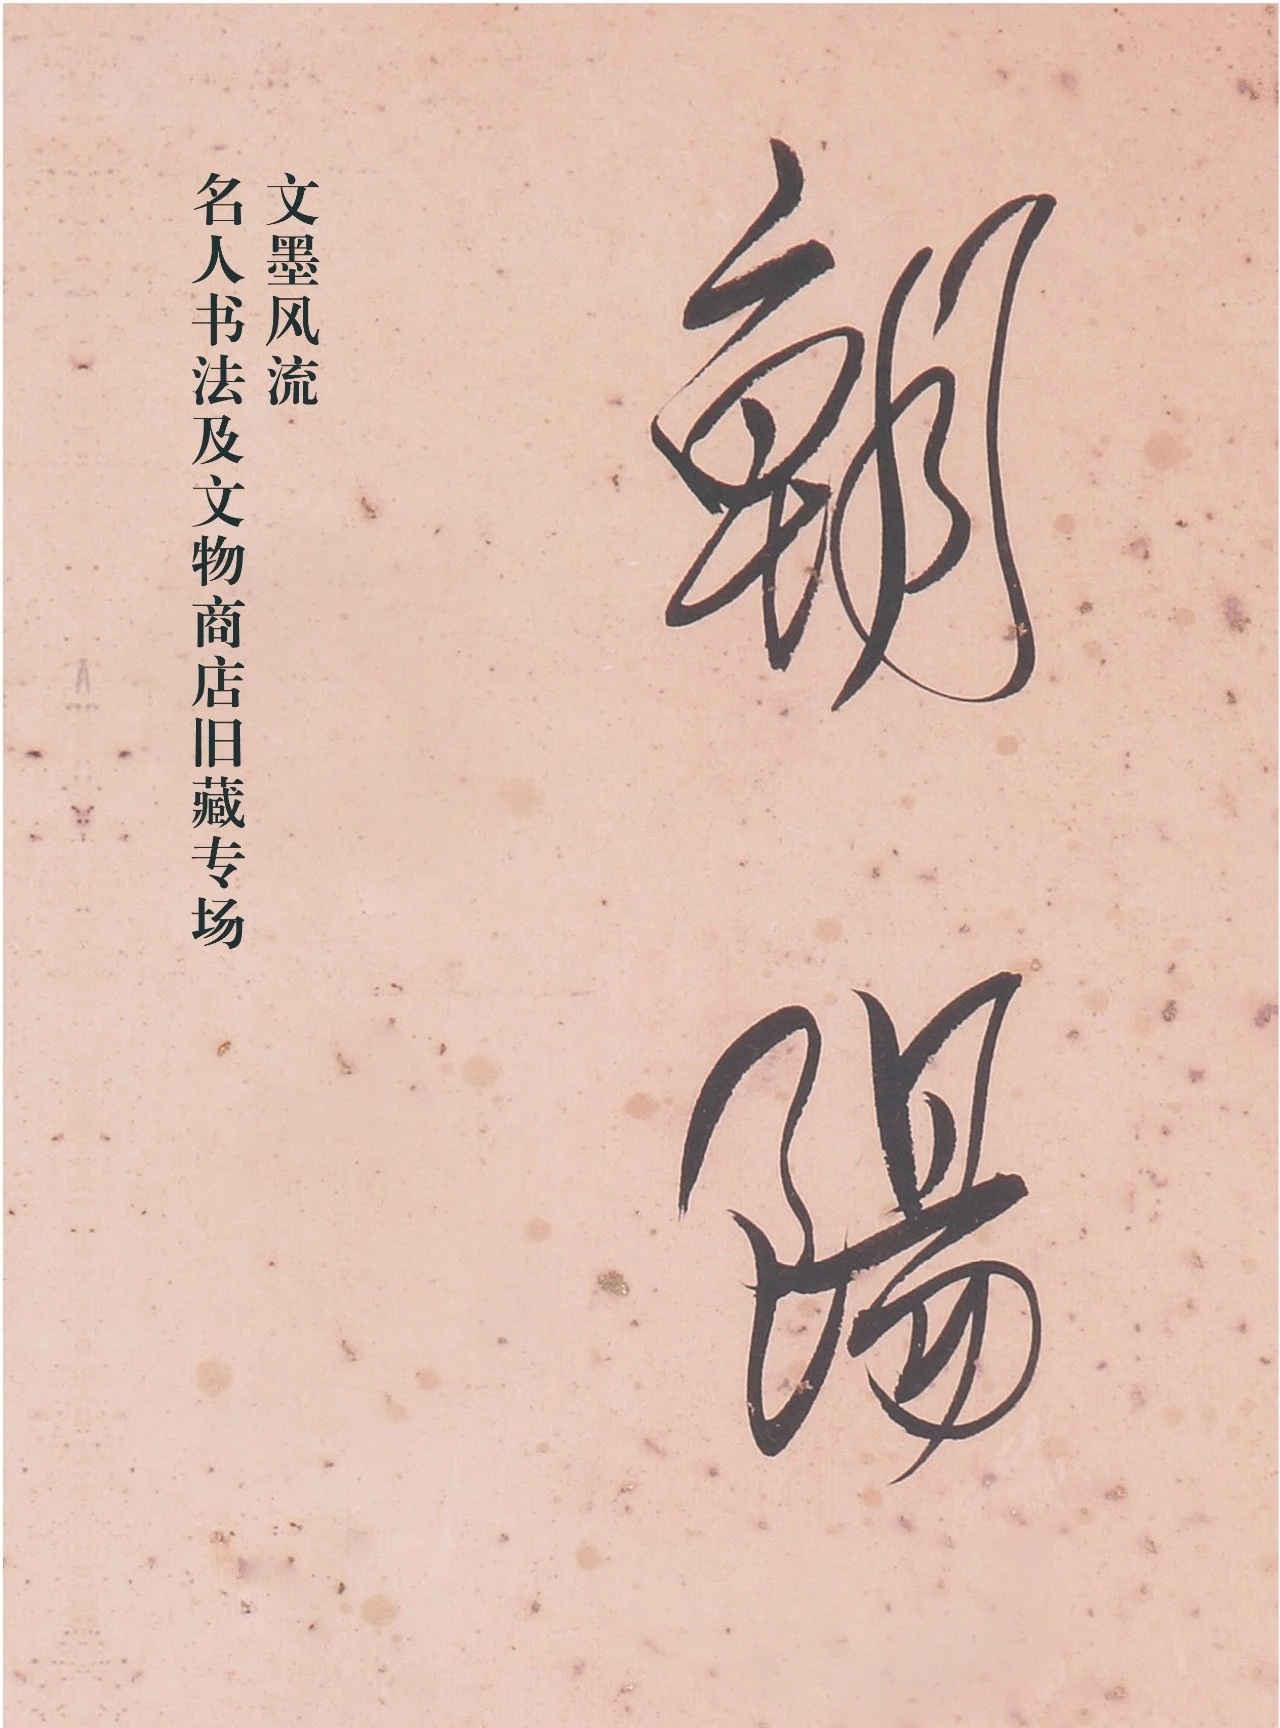 朝
陽
文墨风流
名人书法及文物商店旧藏专场